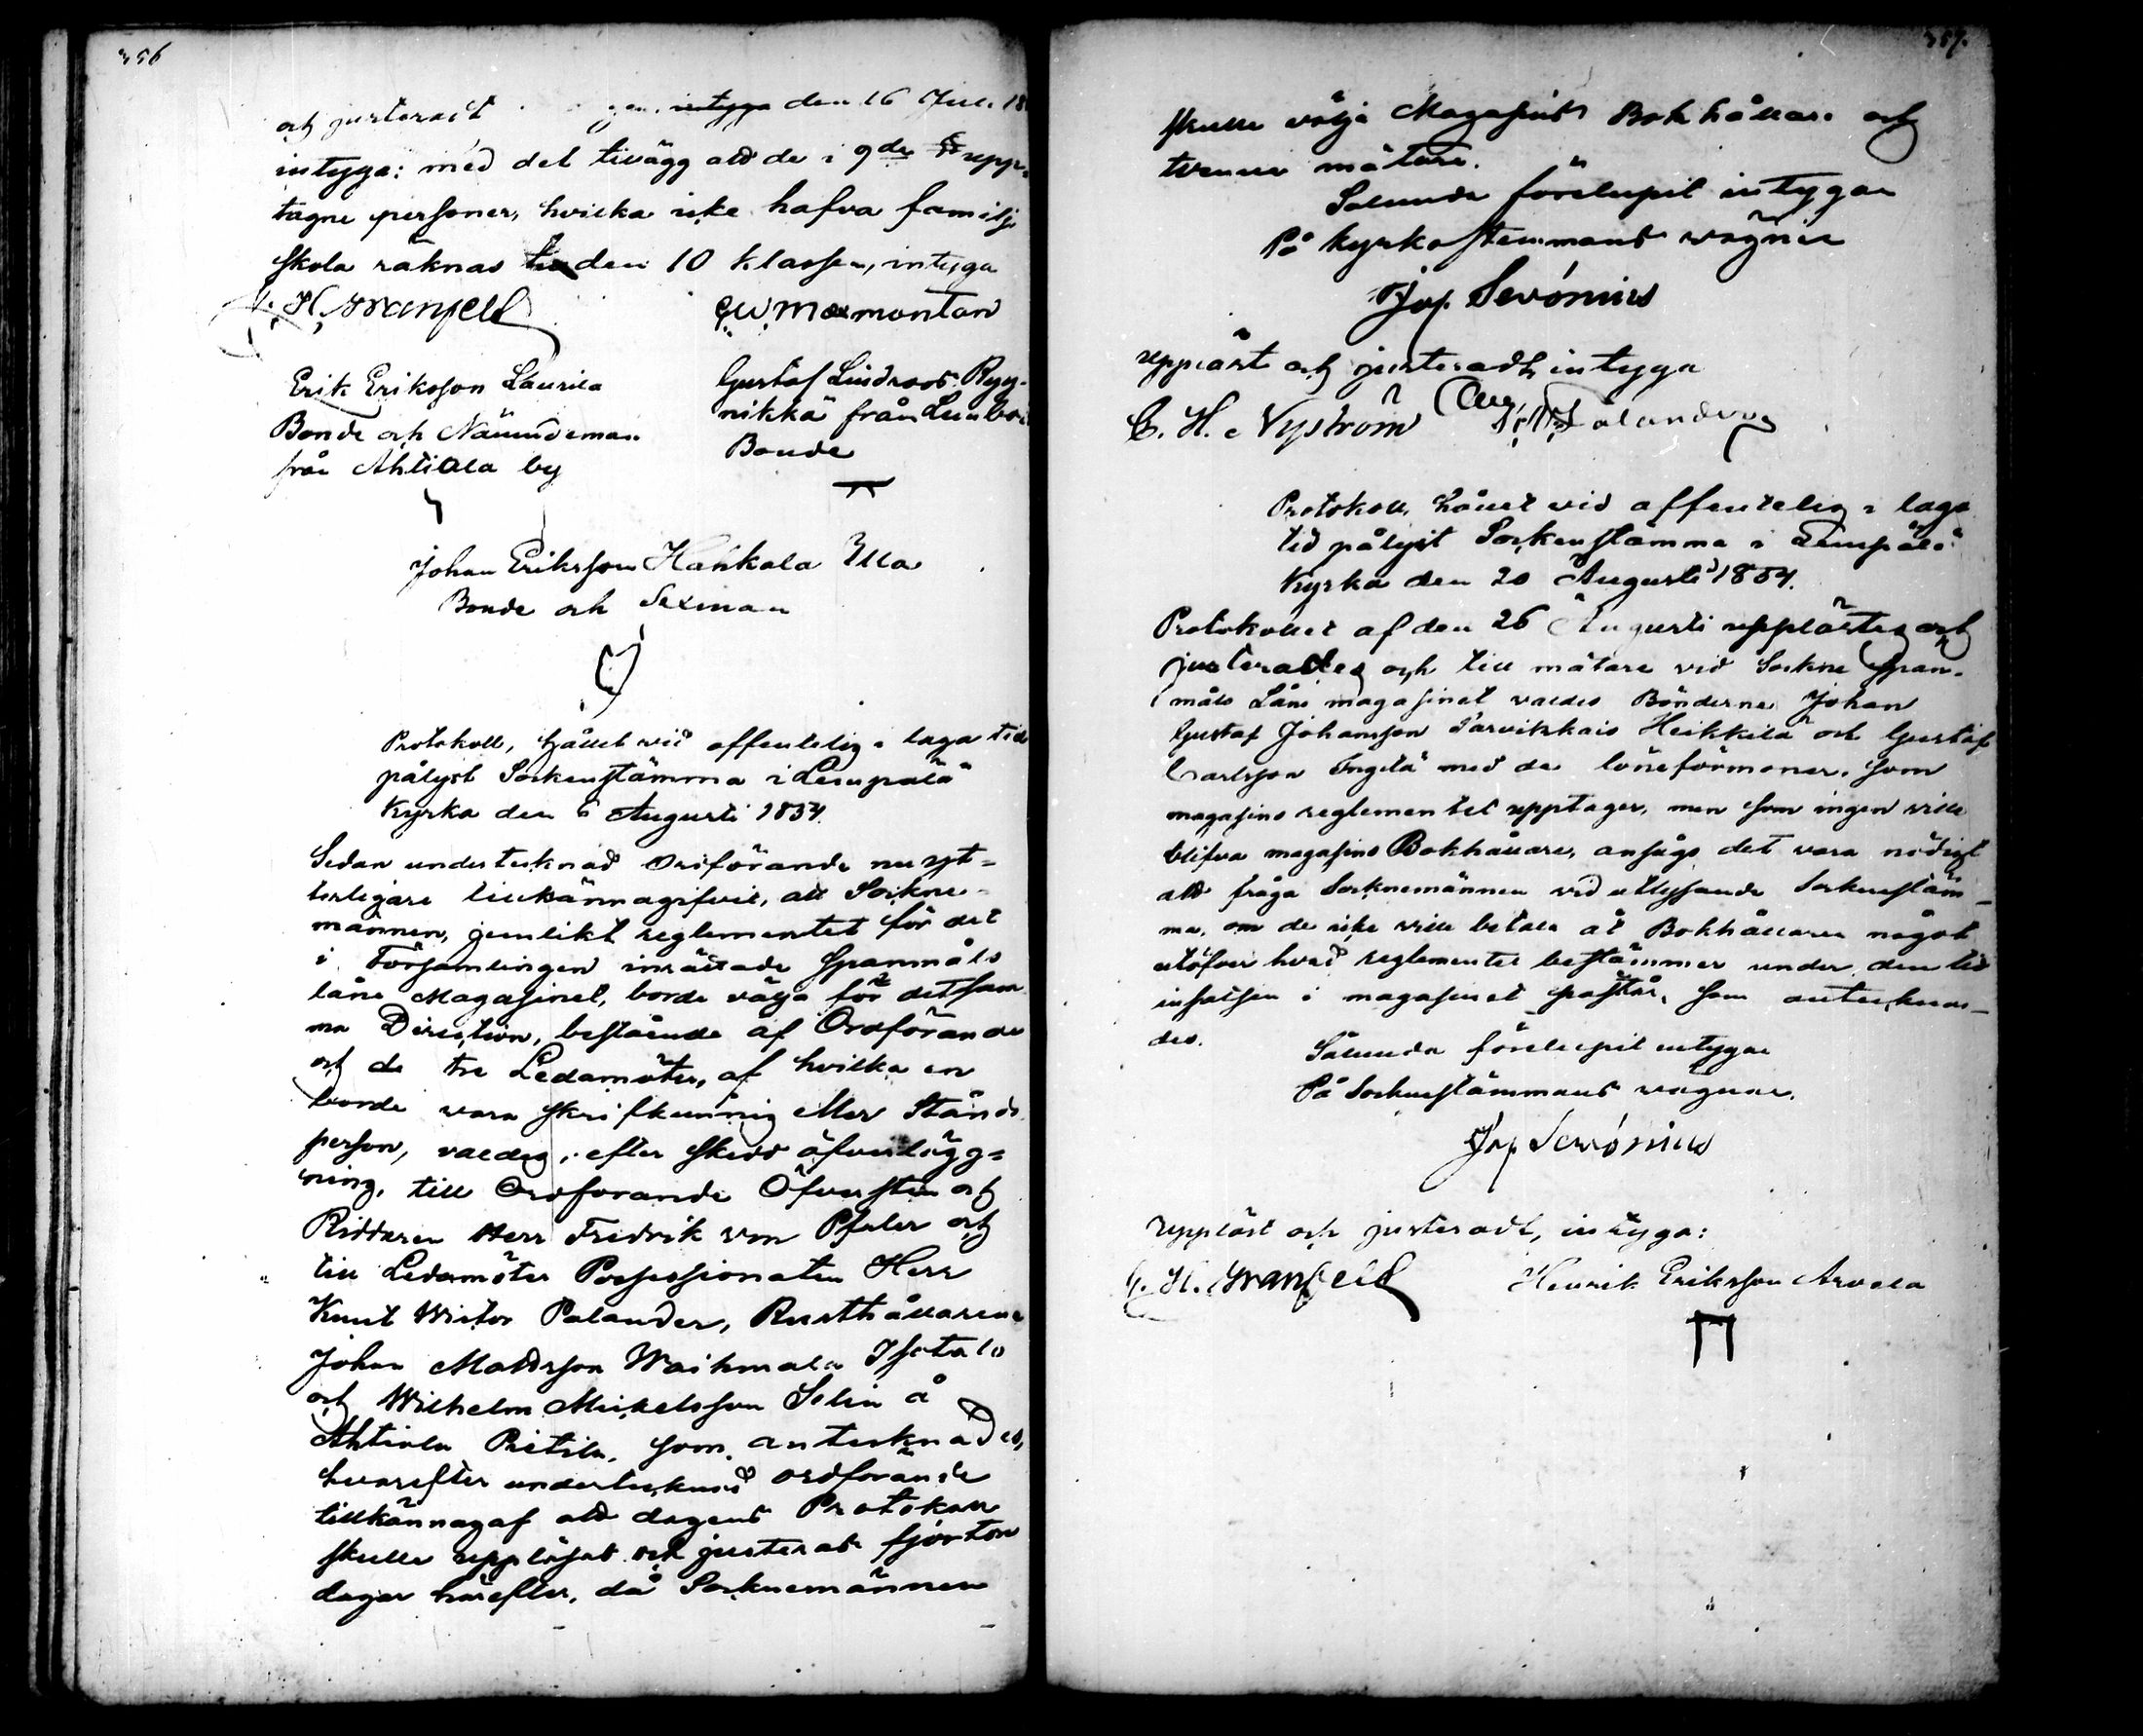 356
och justeradt den 16 Juli 18
intyga: med det tillägg att de i 9de upp-
tagne personer, hvilka icke hafva familj
skola räknas den 10 klassen, intyga
G. H. Granfelt
G W Marmontan
Erik Eriksson Laurila
Bonde och Nämndeman
från Ahtiala by
Gustaf Lindroos Ryy-
nikkä från Lembois
Bonde
Johan Eriksson Hahkala Illa
Bonde och Sexman
Protokoll, hållet vid offentelig i laga tid
pålyst Sockenstämma i Lempälä
Kyrka den 6 Augusti 1854.
Sedan undertecknad Ordförande nu ytt-
terligare tillkännagifvit, att Sockne-
männen, jemlikt reglementet för det
i Församlingen inrättade Spanmåls
låne Magasinet, borde välja för detsam
ma Direction, bestående af Ordförande
och de tre Ledamöter, af hvilka en
borde vara skrifkunnig eller Stånds
person, valdes, efter skedd öfverlägg-
ning, till Ordförande Öfversten och
Riddaren Herr Fredrik von Pfaler och
till Ledamöter Possessionaten Herr
Knut Wictor Palander, Rusthållarene
Johan Mattsson Waihmala Isotalo
och Wilhelm Mickelsson Selin å
Ahtiala Pietila, som antecknades,
hvarefter undertecknad ordförande
tillkännagaf att dagens Protokoll
skulle uppläsas och justeras fjorton
dagar härefter, då Socknemännen
357.
skulle välja Magasins Bokhållare och
tvenne mätare.
Sålunda förelupit intygar
På kyrkostemmans vägnar
Jos. Servónius
uppläst och justeradt, intyga
C. H. Nyström
Palander
Protokoll, hållet vid offentelig i laga
tid pålyst Sockenstämma i Lempälä
Kyrka den 20 Augusti 1854.
Protokollet af den 26 Augusti upplästes och
justerades och till mätare vid Sockne Span-
måls Låne magasinet valdes Bönderne Johan
Gustaf Johansson Sarvikkais Heikkilä och Gustaf
Carlsson Ingilä med de löneförmoner, som
magasins reglementet upptager, men som ingen ville
blifva magasins Bokhållare, ansågs det vara nödigt
att fråga Socknemännen vid utlysande Sockenstäm-
ma, om de icke ville betala åt Bokhållaren något
utöfver hvad reglementet bestämmer under den tid
insatsen i magasinet påstår, som anteckna-
des.
Sålunda förelupit intygar
På Sockenstämmans vägnar.
Jos Servónius
Uppläst och justeradt, intyga:
G. H. Granfelt
Henrik Eriksson Arvela